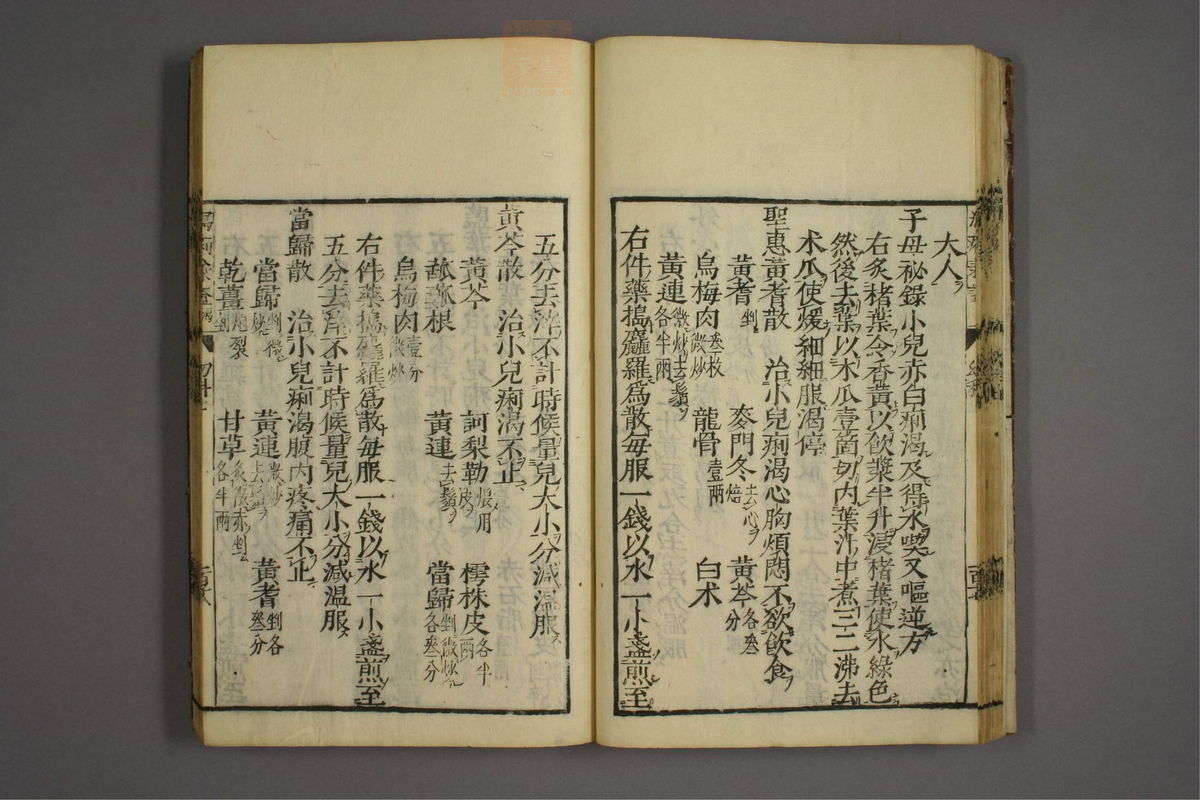 大人
子母祕錄小兒赤白痢渴及得水喫又嘔逆方
右炙楮葉令香黃以飲漿半升浸楮葉使水綠色
然後去葉以木瓜壹箇切內葉汁中煮三二沸去
木瓜使煖細細服渴停
聖惠黃耆散 治小兒痢渴心胸煩悶不欲飲食
黃耆剉 麥門冬去心焙 黃芩各叁分
烏梅肉叁枚微炒 龍骨壹兩 白朮
黃連微炒去鬚各半兩
右件藥搗麤羅為散每服一錢以水一小盞煎至
五分去滓不計時候量兒大小分減溫服
黃芩散 治小兒痢渴不止
黃芩 訶梨勒煨用皮 樗株皮各半兩
菰根 黃連去鬚 當歸剉微炒各叁分
烏梅肉壹分微炒
右件藥搗麤羅為散每服一錢以水一小盞煎至
五分去滓不計時候量兒大小分減溫服
當歸散 治小兒痢渴腹內疼痛不止
當歸剉微炒 黃連微炒去鬚 黃耆剉各叁分
乾薑炮裂剉 甘草炙微赤剉各半兩